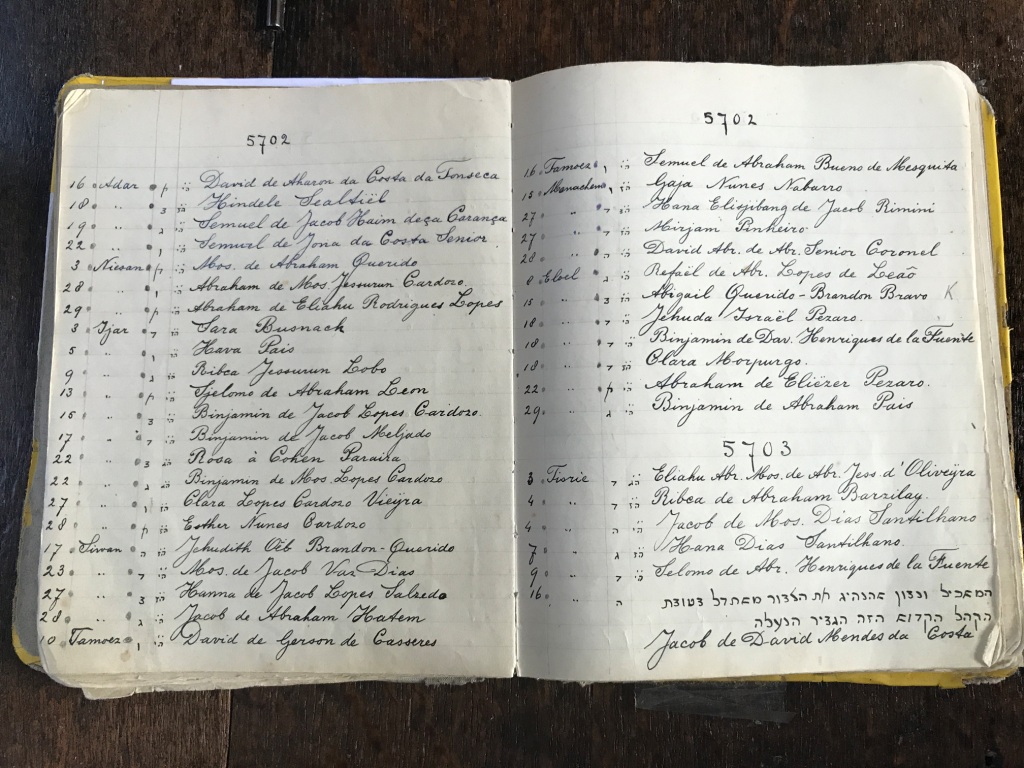 5702
16 Adar David de Aharon da Costa da Fonseca
18 " Hindele Sealtiël
19 " Semuel de Jacob Haim deça Carança
22 " Semuel de Jona da Costa Senior
3 Niesan Mos. de Abraham Querido
28 " Abraham de Mos. Jessurun Cardozo
29 " Abraham de Eliahu Rodrigues Lopes
3 Ijar Sara Busnach
5 " Hava Pais
9 " Ribca Jessurun Lobo
13 " Sjelomo de Abraham Leon
15 " Binjamin de Jacob Lopes Cardozo
17 " Binjamin de Jacob Meljado
22 " Rosa à Cohen Paraira
22 " Binjamin de Mos. Lopes Cardozo
27 " Clara Lopes Cardozo Vieÿra
28 " Esther Nunes Cardozo
17 Siwan Jehudith Oëb Brandon-Querido
23 " Mos. de Jacob Vaz Dias
27 " Hanna de Jacob Lopes Salzedo
28 " Jacob de Abraham Hatem
10 Tamoez David de Gerson de Casseres
5702
16 Tamoez Semuel de Abraham Bueno de Mesquita
15 Menachem Gaja Nunes Nabarro
27 " Hana de Jacob Rimini
27 " Mirjam Pinheiro
28 " David Abr. de Abr. Senior Coronel
8 Eloel Refaël de Abr. Lopes de Leaõ
15 " Abigail Querido-Brandon Bravo K
18 " Jehuda Israël Pezaro
18 " Binjamin de Dav. Henriques de la Fuente
18 " Clara Morpurgo.
22 " Abraham de Eliëzer Pezaro.
29 " Binjamin de Abraham Pais
5703
3 Tisrie Eliahu Abr. Mos. de Abr. Jes. d'Oliveÿra
4 " Ribca de Abraham Barzilay.
4 " Jacob de Mos. Dias Santilhano
7 " Hana Dias Santilhano.
9 " Selomo de Abr. Henriques de la Fuente
16 " ה המשכיל ונבון את הצבור
הקהל הקדוש הזה הגביר הנעלה
Jacob de David Mendes da Costa